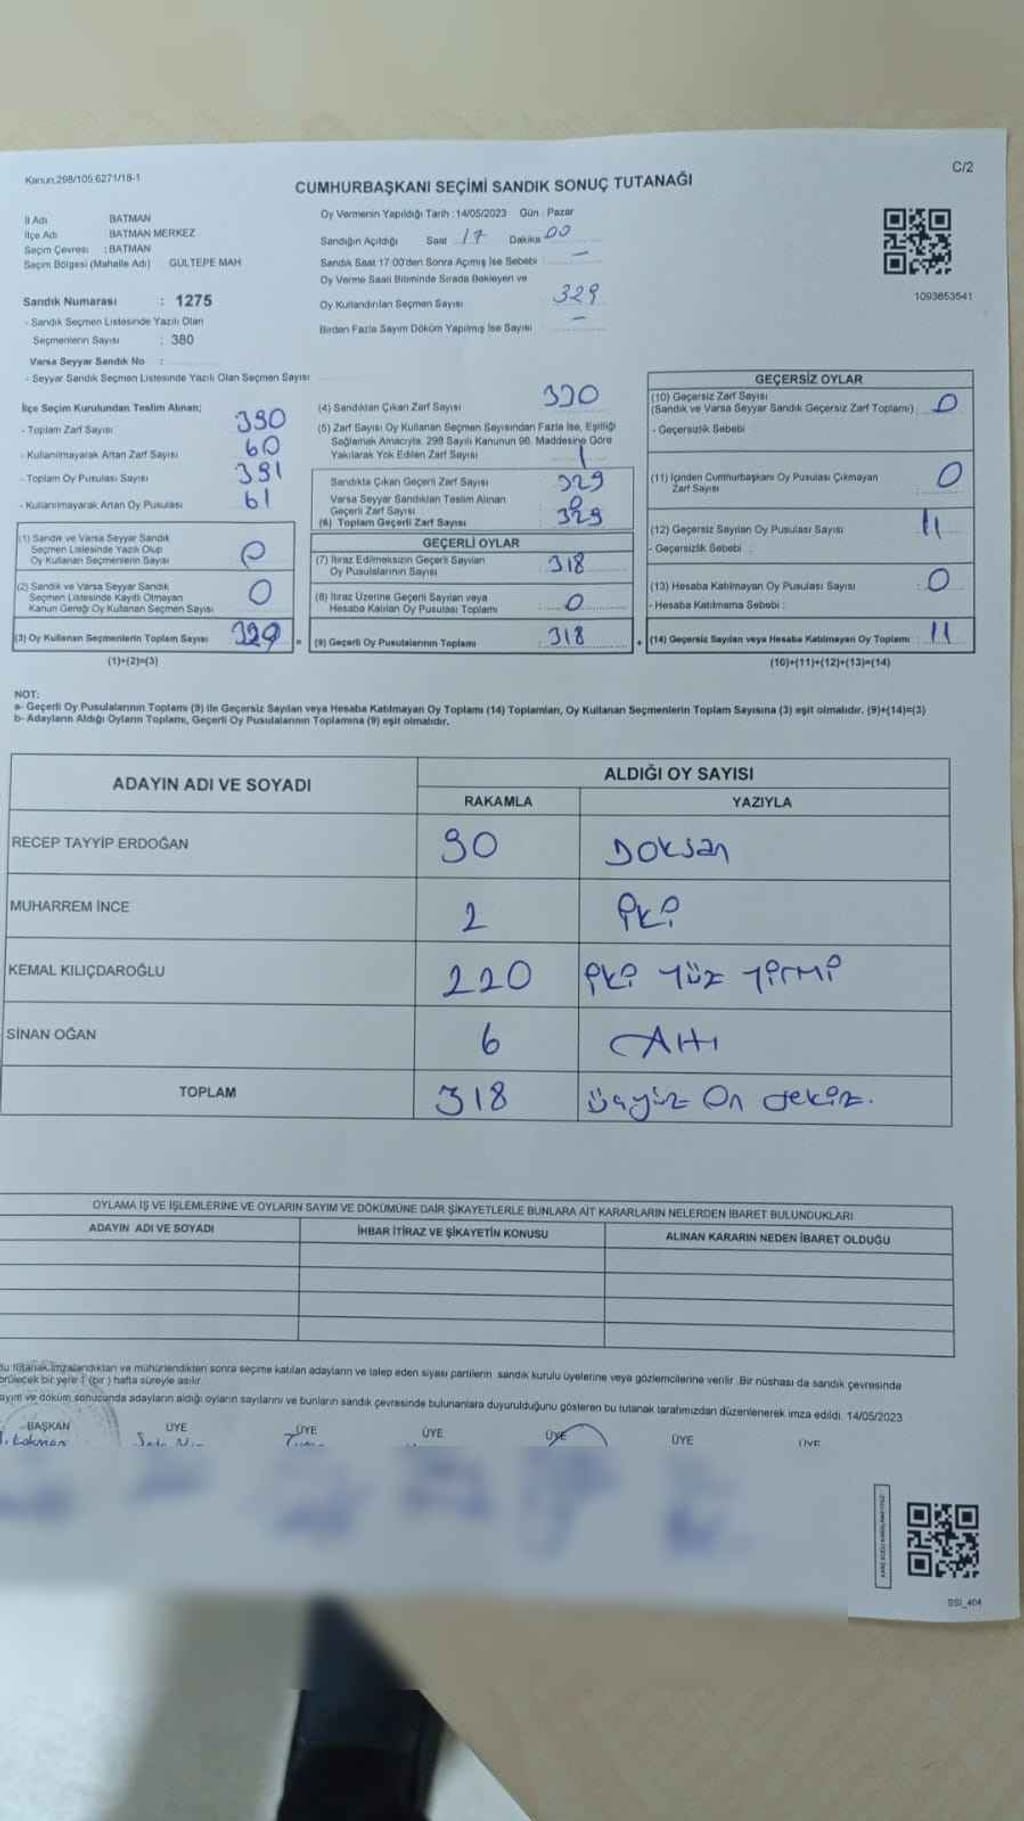 Kanun:298/105.6271/18-1
C/2
CUMHURBAŞKANI SEÇİMİ SANDIK SONUÇ TUTANAĞI
İl Adı BATMAN
İlçe Adı BATMAN MERKEZ
Seçim Çevresi : BATMAN
Seçim Bölgesi (Mahalle Adı) GÜLTEPE MAH
Oy Vermenin Yapıldığı Tarih : 14/05/2023 Gün : Pazar
Sandığın Açıldığı Saat 17 Dakika 00
Sandık Saat 17:00'den Sonra Açılmış İse Sebebi —
Oy Verme Saati Bitiminde Sırada Bekleyen ve
Oy Kullandırılan Seçmen Sayısı 329
Birden Fazla Sayım Döküm Yapılmış İse Sayısı —
1093853541
Sandık Numarası : 1275
- Sandık Seçmen Listesinde Yazılı Olan
Seçmenlerin Sayısı : 380
Varsa Seyyar Sandık No :
- Seyyar Sandık Seçmen Listesinde Yazılı Olan Seçmen Sayısı
İlçe Seçim Kurulundan Teslim Alınan;
- Toplam Zarf Sayısı 390
- Kullanılmayarak Artan Zarf Sayısı 60
- Toplam Oy Pusulası Sayısı 391
- Kullanılmayarak Artan Oy Pusulası 61
(1) Sandık ve Varsa Seyyar Sandık
Seçmen Listesinde Yazılı Olup
Oy Kullanan Seçmenlerin Sayısı
(2) Sandık ve Varsa Seyyar Sandık
Seçmen Listesinde Kayıtlı Olmayan
Kanun Gereği Oy Kullanan Seçmen Sayısı 0
(3) Oy Kullanan Seçmenlerin Toplam Sayısı 329
(1)+(2)=(3)
(4) Sandıktan Çıkan Zarf Sayısı 330
(5) Zarf Sayısı Oy Kullanan Seçmen Sayısından Fazla İse, Eşitliği
Sağlamak Amacıyla, 298 Sayılı Kanunun 98. Maddesine Göre
Yakılarak Yok Edilen Zarf Sayısı 1
Sandıkta Çıkan Geçerli Zarf Sayısı 329
Varsa Seyyar Sandıktan Teslim Alınan
Geçerli Zarf Sayısı 0
(6) Toplam Geçerli Zarf Sayısı 329
GEÇERLİ OYLAR
(7) İtiraz Edilmeksizin Geçerli Sayılan
Oy Pusulalarının Sayısı 318
(8) İtiraz Üzerine Geçerli Sayılan veya
Hesaba Katılan Oy Pusulası Toplamı 0
= (9) Geçerli Oy Pusulalarının Toplamı 318
GEÇERSİZ OYLAR
(10) Geçersiz Zarf Sayısı
(Sandık ve Varsa Seyyar Sandık Geçersiz Zarf Toplamı) 0
- Geçersizlik Sebebi
(11) İçinden Cumhurbaşkanı Oy Pusulası Çıkmayan
Zarf Sayısı 0
(12) Geçersiz Sayılan Oy Pusulası Sayısı 11
- Geçersizlik Sebebi :
(13) Hesaba Katılmayan Oy Pusulası Sayısı : 0
- Hesaba Katılmama Sebebi :
+ (14) Geçersiz Sayılan veya Hesaba Katılmayan Oy Toplamı 11
(10)+(11)+(12)+(13)=(14)
NOT:
a- Geçerli Oy Pusulalarının Toplamı (9) ile Geçersiz Sayılan veya Hesaba Katılmayan Oy Toplamı (14) Toplamları, Oy Kullanan Seçmenlerin Toplam Sayısına (3) eşit olmalıdır. (9)+(14)=(3)
b- Adayların Aldığı Oyların Toplamı, Geçerli Oy Pusulalarının Toplamına (9) eşit olmalıdır.
ADAYIN ADI VE SOYADI
ALDIĞI OY SAYISI
RAKAMLA YAZIYLA
RECEP TAYYİP ERDOĞAN 90 Doksan
MUHARREM İNCE 2 İki
KEMAL KILIÇDAROĞLU 220 İki Yüz Yirmi
SİNAN OĞAN 6 Altı
TOPLAM 318 üçyüz On sekiz.
OYLAMA İŞ VE İŞLEMLERİNE VE OYLARIN SAYIM VE DÖKÜMÜNE DAİR ŞİKAYETLERLE BUNLARA AİT KARARLARIN NELERDEN İBARET BULUNDUKLARI
ADAYIN ADI VE SOYADI İHBAR İTİRAZ VE ŞİKAYETİN KONUSU ALINAN KARARIN NEDEN İBARET OLDUĞU
Bu tutanak imzalandıktan ve mühürlendikten sonra seçime katılan adayların ve talep eden siyasi partilerin sandık kurulu üyelerine veya gözlemcilerine verilir. Bir nüshası da sandık çevresinde
görülecek bir yere 1 (bir) hafta süreyle asılır.
Sayım ve döküm sonucunda adayların aldığı oyların sayılarını ve bunların sandık çevresinde bulunanlara duyurulduğunu gösteren bu tutanak tarafımızdan düzenlenerek imza edildi. 14/05/2023
BAŞKAN ÜYE ÜYE ÜYE ÜYE ÜYE ÜYE
Lokman
SSI_404